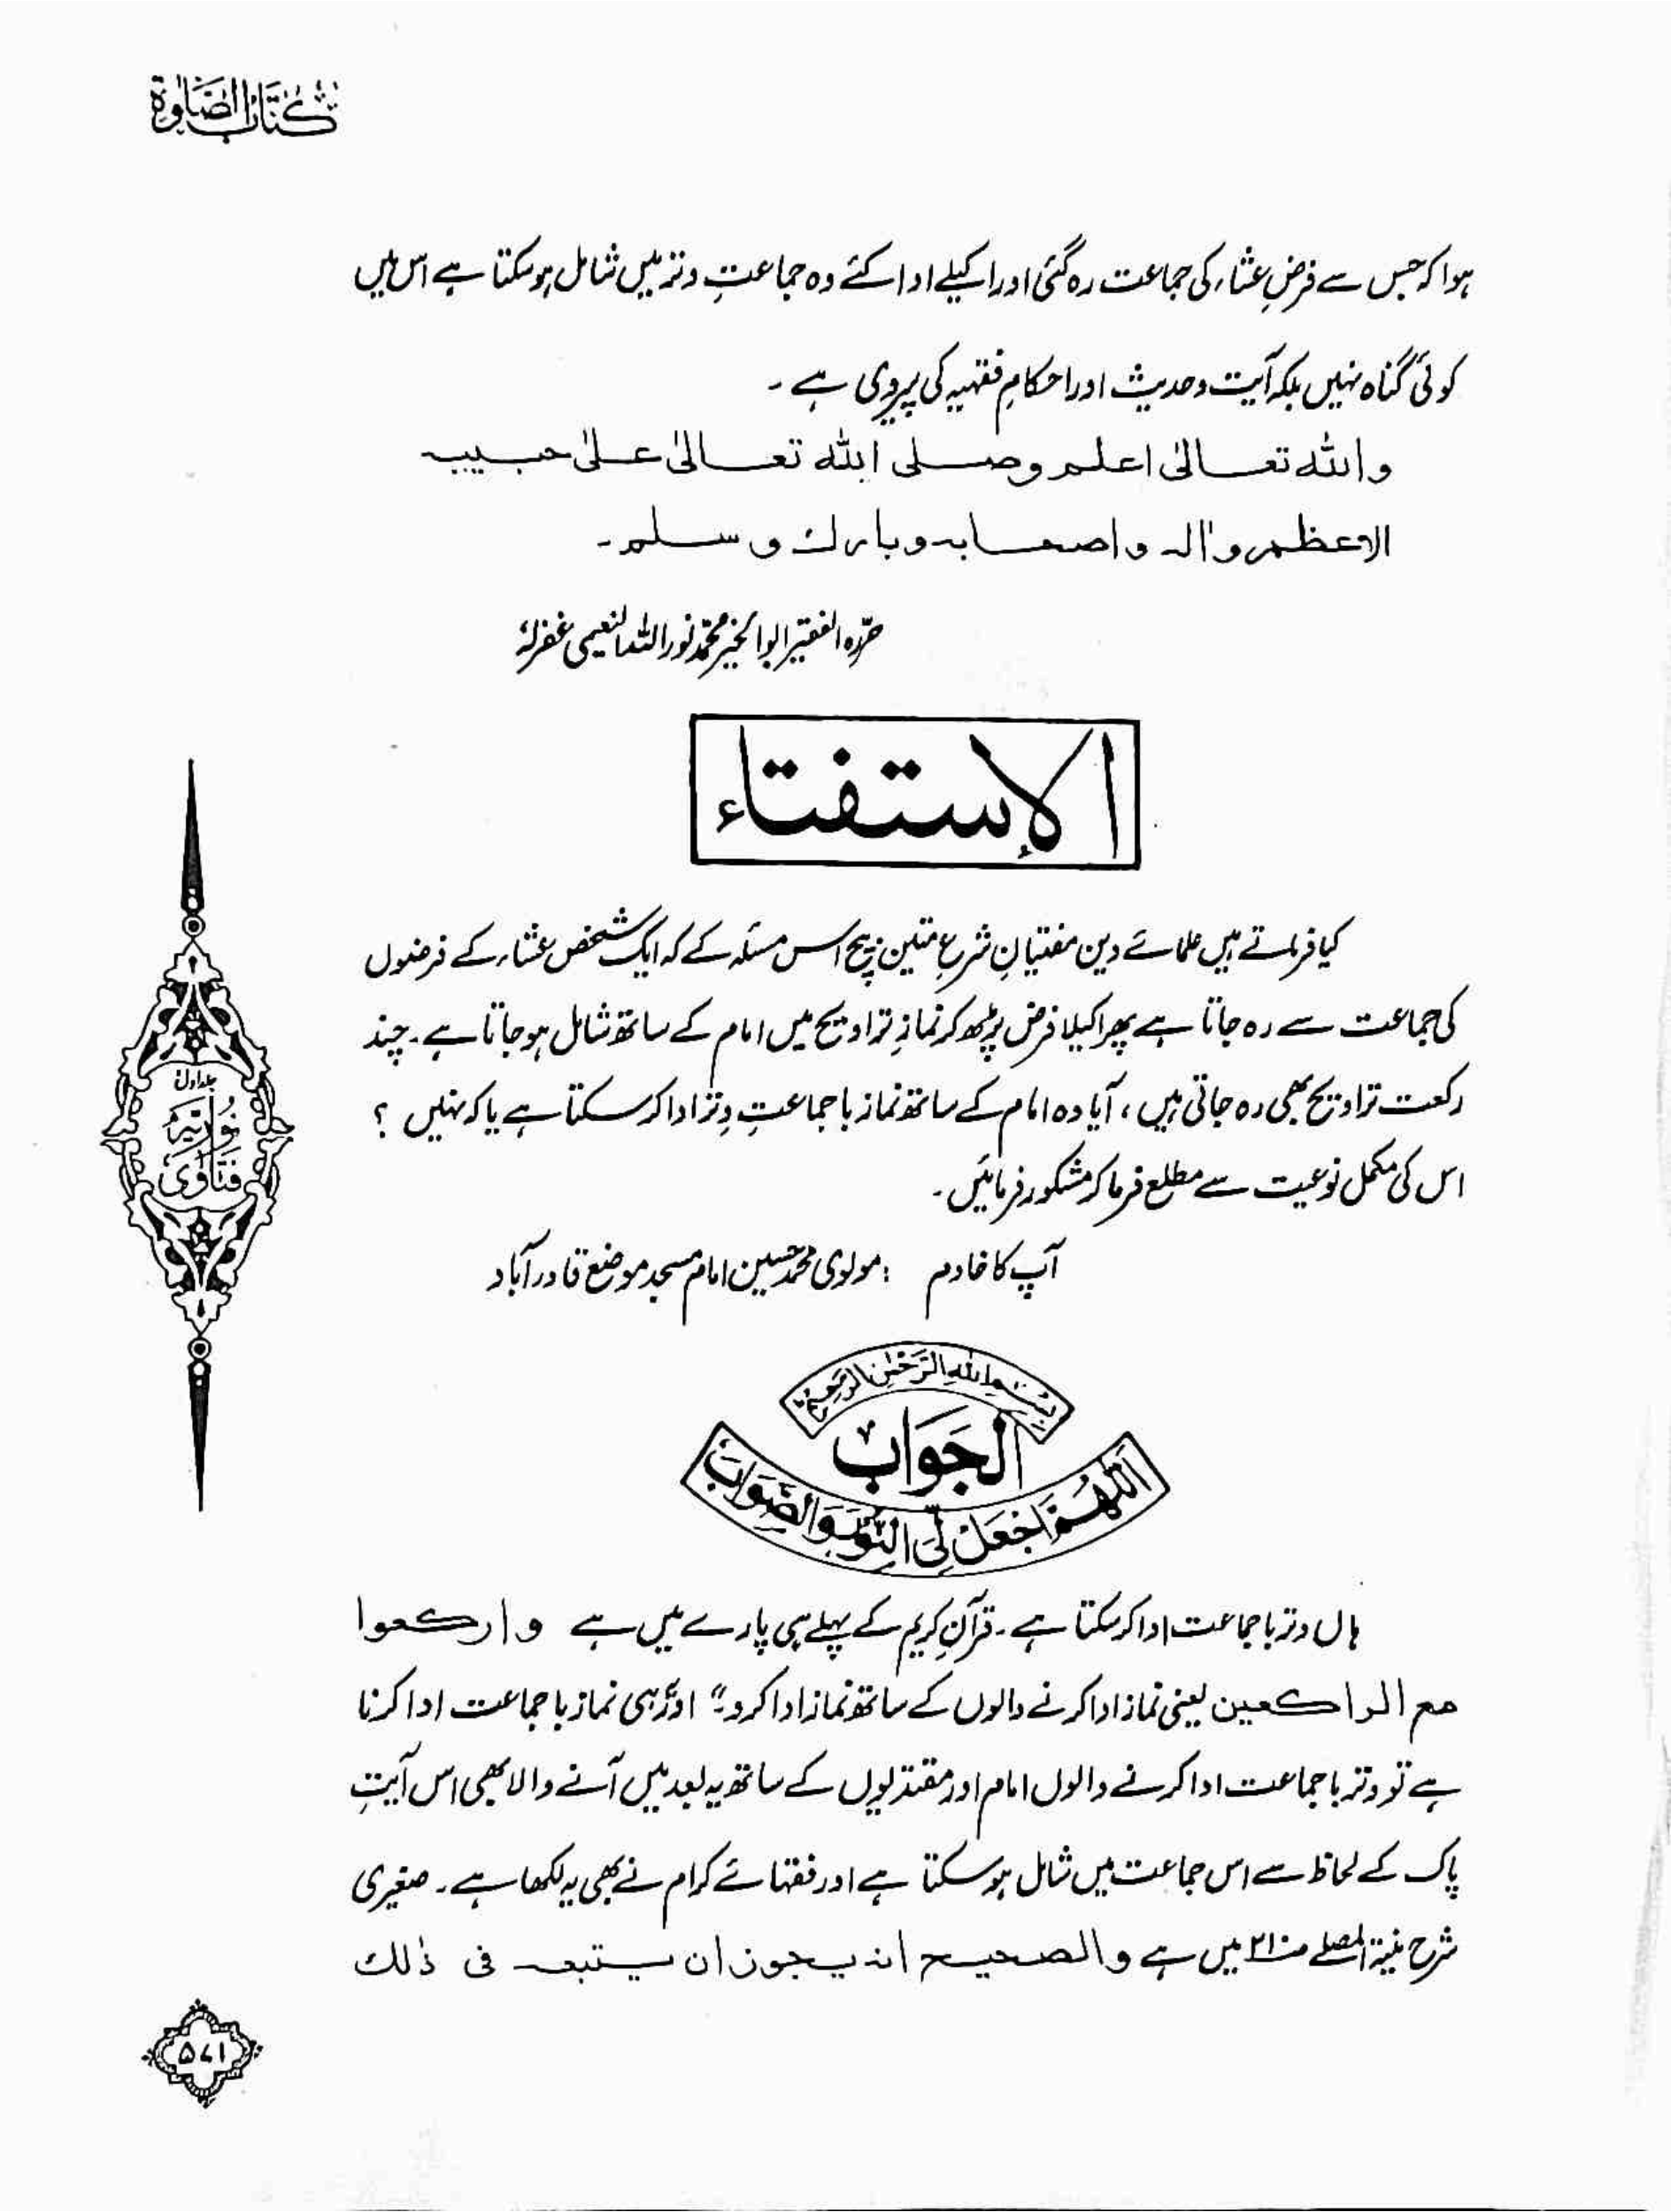 كتاب الصلوة
ہوا کہ جس سے فرضِ عشاء کی جماعت رہ گئی اور اکیلے ادا کئے وہ جماعتِ وتر میں شامل ہو سکتا ہے اس میں
کوئی گناہ نہیں بلکہ آیت و حدیث اور احکامِ فقہیہ کی پیروی ہے ۔
والله تعالىٰ اعلم وصلى الله تعالىٰ علىٰ حبيبه
الاعظم واٰله واصحابه وبارك وسلم ۔
حرّرہ الفقیر ابو الخیر محمّد نور اللہ النعیمی غفرلہٗ
الإستفتاء
کیا فرماتے ہیں علمائے دین مفتیانِ شرعِ متین بیچ اس مسئلہ کے کہ ایک شخص عشاء کے فرضوں
کی جماعت سے رہ جاتا ہے پھر اکیلا فرض پڑھ کر نمازِ تراویح میں امام کے ساتھ شامل ہو جاتا ہے ۔ چند
رکعت تراویح بھی رہ جاتی ہیں ، آیا وہ امام کے ساتھ نماز با جماعتِ وِتر ادا کر سکتا ہے یا کہ نہیں ؟
اس کی مکمل نوعیت سے مطلع فرما کر مشکور فرمائیں ۔
آپ کا خادم : مولوی محمد حسین امام مسجد موضع قادر آباد
جلد اول
نُورِیَّہ
فَتَاوٰی
بِسْمِ اللهِ الرَّحْمٰنِ الرَّحِيْمِ
الجَوَابُ
اَللّٰهُمَّ اجْعَلْ لِّيَ النُّوْرَ وَالصَّوَابَ
ہاں وتر با جماعت ادا کر سکتا ہے ۔ قرآنِ کریم کے پہلے ہی پارے میں ہے واركعوا
مع الراكعين یعنی نماز ادا کرنے والوں کے ساتھ نماز ادا کرو" اور یہی نماز با جماعت ادا کرنا
ہے تو وتر با جماعت ادا کرنے والوں امام اور مقتدیوں کے ساتھ یہ بعد میں آنے والا بھی اس آیتِ
پاک کے لحاظ سے اس جماعت میں شامل ہو سکتا ہے اور فقہائے کرام نے بھی یہ لکھا ہے ۔ صغیری
شرح منیۃ المصلے ص۲۱۰ میں ہے والصحيح انه يجوز ان يتبعه فى ذٰلك
۵۷۱